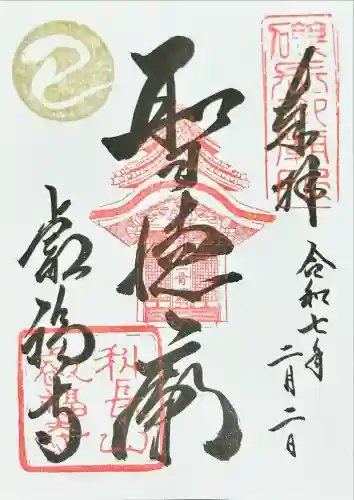 奉拝
令和七年
二月二日
聖徳廟
叡福寺
磯長山
叡福寺